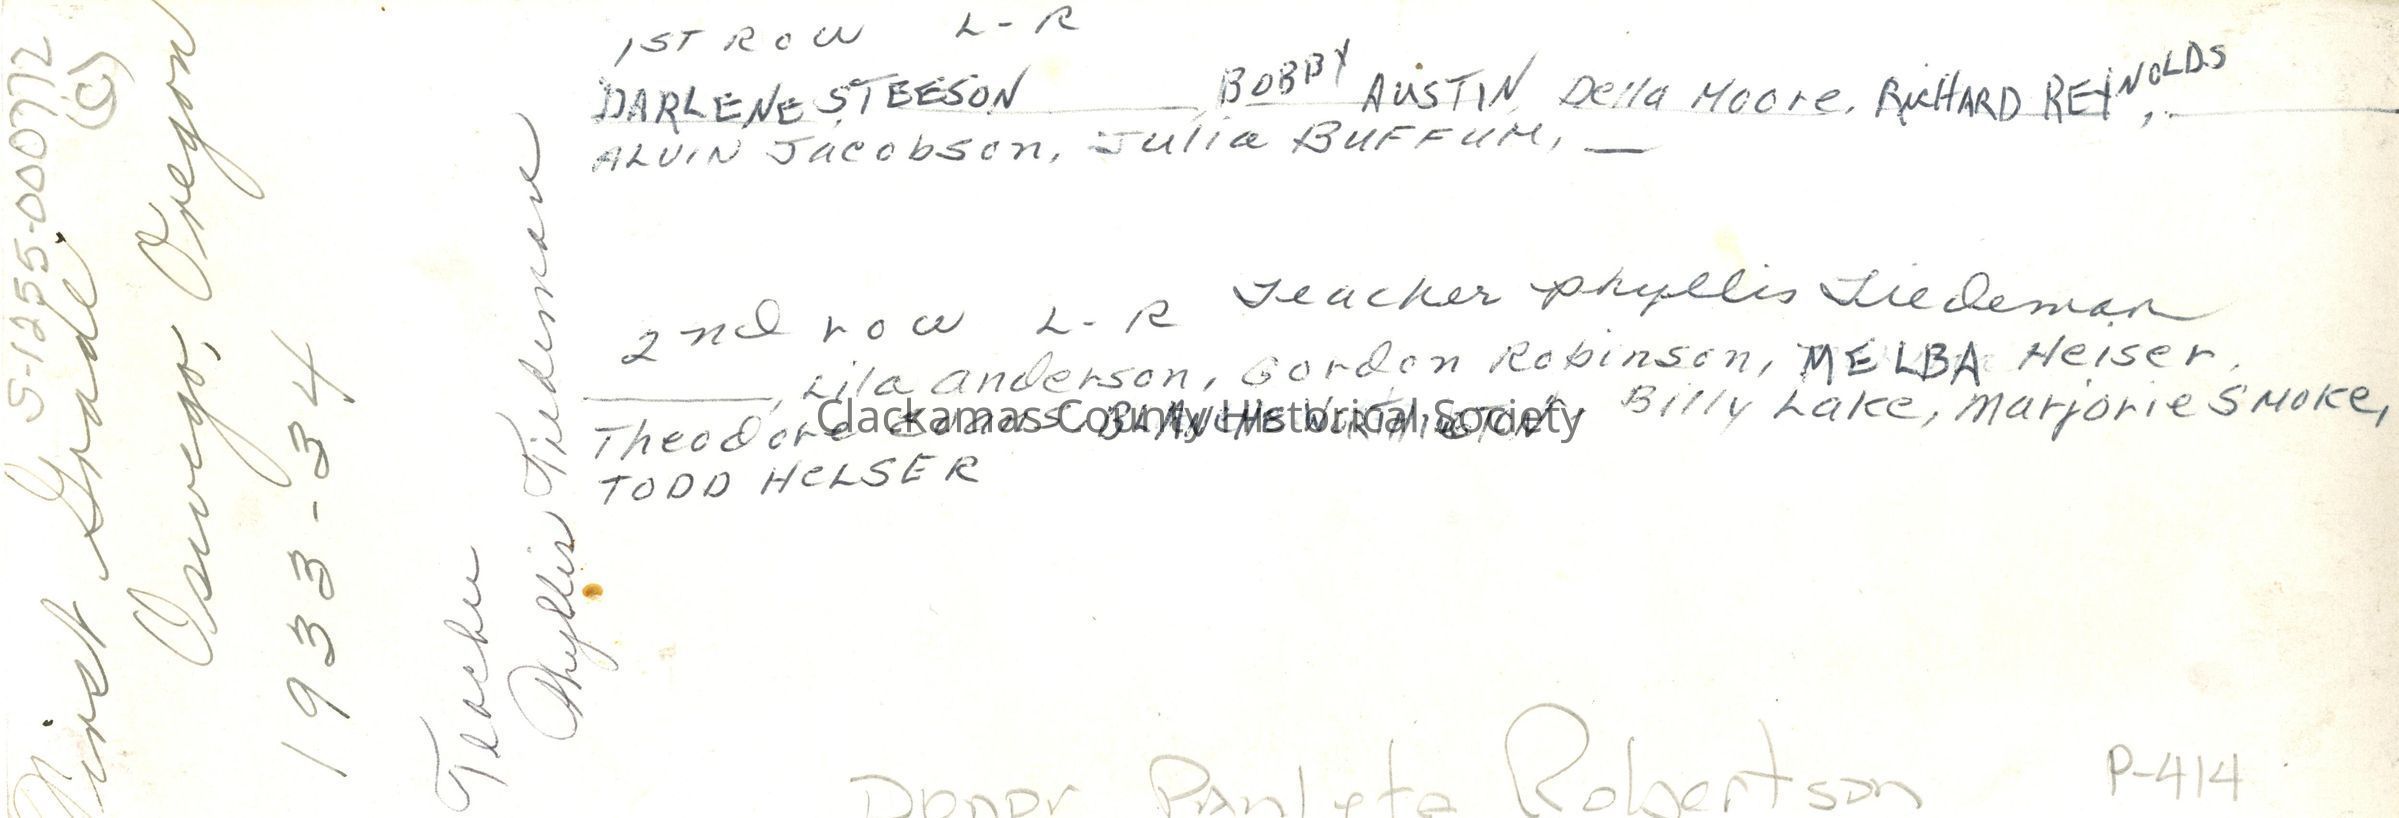 S-1255-000772
(c)
First Grade
Oswego, Oregon
1933-34
Teacher
Phyllis Tiedemann
1ST ROW L-R
DARLENE STEESON, BOBBY AUSTIN, Della Moore, RICHARD REYNOLDS,
ALVIN Jacobson, Julia BUFFUM, —
2nd row L-R Teacher Phyllis Tiedeman
____, Lila anderson, Gordon Robinson, MELBA Heiser,
Theodore BLANCHE WORTHINGTON, Billy Lake, Marjorie SMOKE,
TODD HELSER
Clackamas County Historical Society
Donor Paulete Robertson
P-414